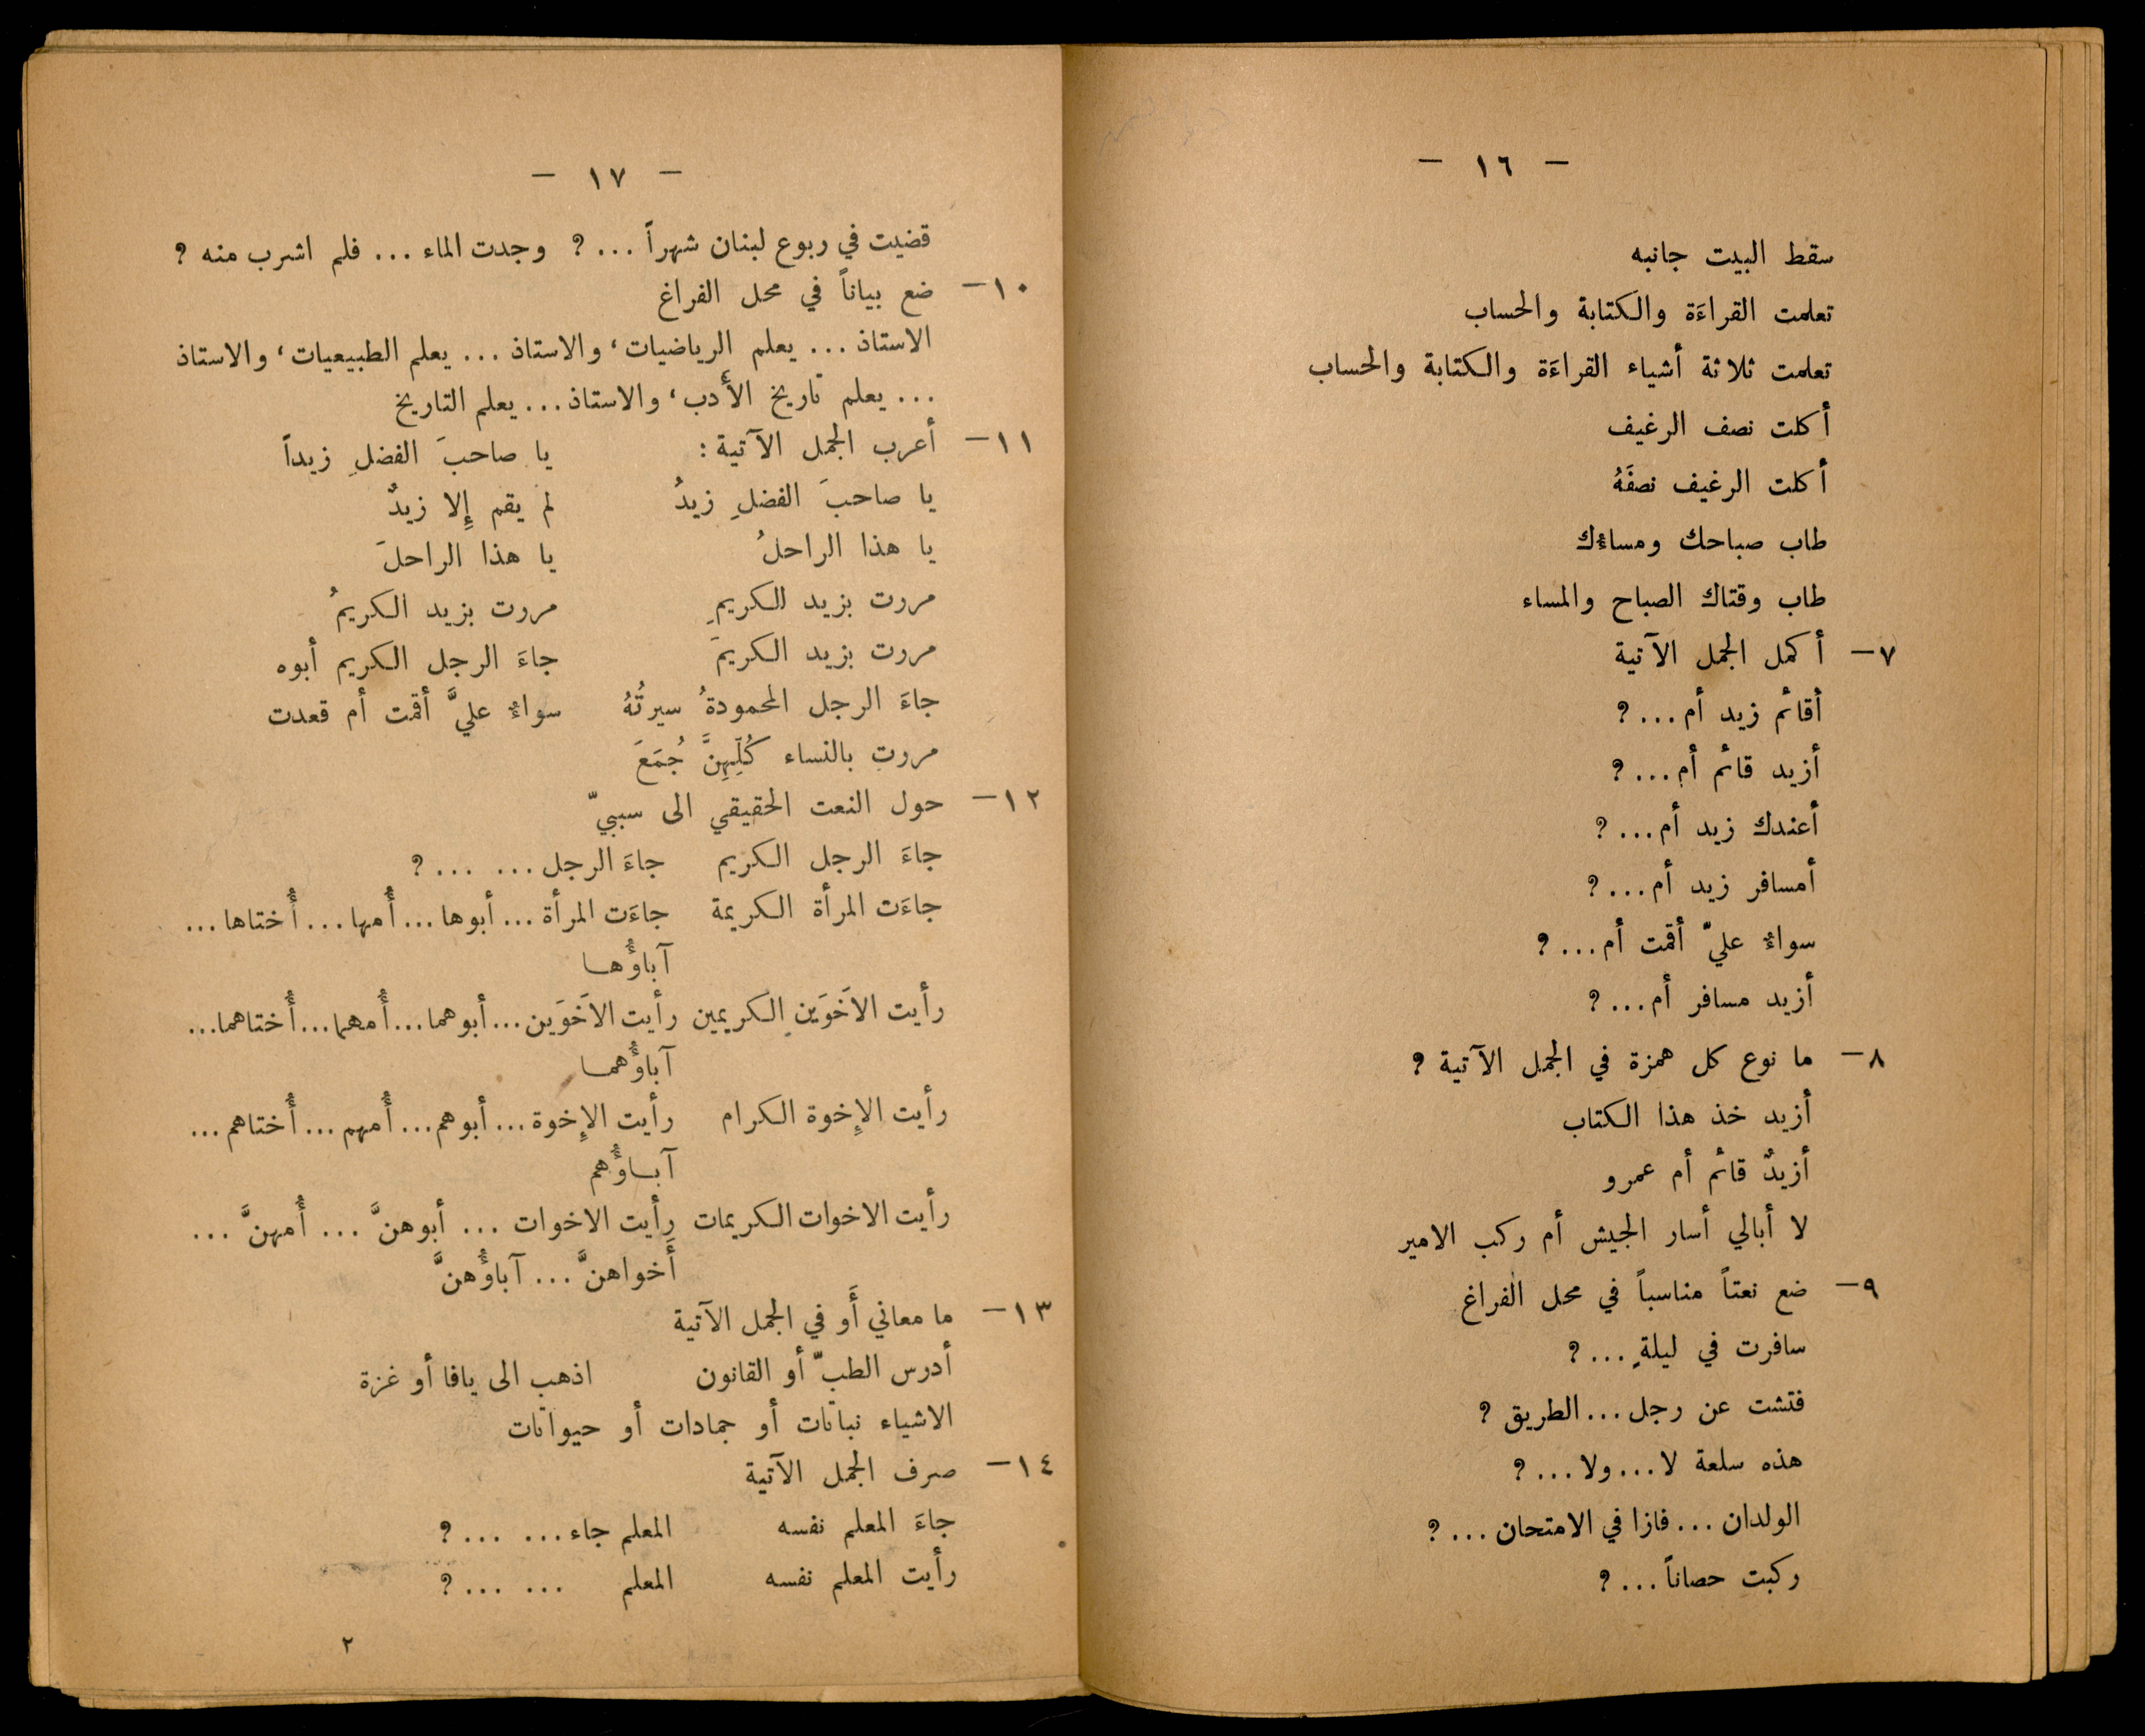 — ١٦ —
سقط البيت جانبه
تعلمت القراءَة والكتابة والحساب
تعلمت ثلاثة أشياء القراءَة والكتابة والحساب
أكلت نصف الرغيف
أكلت الرغيف نصفَهُ
طاب صباحك ومساؤك
طاب وقتاك الصباح والمساء
٧— أكمل الجمل الآتية
أقائم زيد أم... ؟
أزيد قائم أم... ؟
أعندك زيد أم... ؟
أمسافر زيد أم... ؟
سواءٌ عليّ أقمت أم... ؟
أزيد مسافر أم... ؟
٨— ما نوع كل همزة في الجمل الآتية ؟
أزيد خذ هذا الكتاب
أزيدٌ قائم أم عمرو
لا أبالي أسار الجيش أم ركب الامير
٩— ضع نعتاً مناسباً في محل الفراغ
سافرت في ليلةٍ... ؟
فتشت عن رجل... الطريق ؟
هذه سلعة لا... ولا... ؟
الولدان... فازا في الامتحان... ؟
ركبت حصاناً... ؟
— ١٧ —
قضيت في ربوع لبنان شهراً ... ؟ وجدت الماء ... فلم اشرب منه ؟
١٠— ضع بياناً في محل الفراغ
الاستاذ ... يعلم الرياضيات، والاستاذ ... يعلم الطبيعيات، والاستاذ
... يعلم تاريخ الأدب، والاستاذ... يعلم التاريخ
١١— أعرب الجمل الآتية : يا صاحبَ الفضلِ زيداً
يا صاحبَ الفضلِ زيدُ لم يقم إِلا زيدٌ
يا هذا الراحلُ يا هذا الراحلَ
مررت بزيد الكريمِ مررت بزيد الكريمُ
مررت بزيد الكريمَ جاءَ الرجل الكريم أبوه
جاءَ الرجل المحمودةُ سيرتُهُ سواءٌ عليَّ أقمت أم قعدت
مررت بالنساء كُلِّهِنَّ جُمَعَ
١٢— حول النعت الحقيقي الى سببيّ
جاءَ الرجل الكريم جاءَ الرجل... ... ؟
جاءَت المرأة الكريمة جاءَت المرأة ... أبوها... أُمها... أُختاها...
آباؤُها
رأيت الاَخَوَينِ الكريمين رأيت الاَخَوَين... أبوهما... أُمهما... أُختاهما...
آباؤُهما
رأيت الإِخوة الكرام رأيت الإِخوة... أبوهم... أُمهم... أُختاهم...
آباؤُهم
رأيت الاخوات الكريمات رأيت الاخوات ... أبوهنَّ ... أُمهنَّ ...
أَخواهنَّ ... آباؤُهنَّ
١٣— ما معاني أَو في الجمل الآتية
أدرس الطبّ أو القانون اذهب الى يافا أو غزة
الاشياء نباتات أو جمادات أو حيوانات
١٤— صرف الجمل الآتية
جاءَ المعلم نفسه المعلم جاء... ... ؟
رأيت المعلم نفسه المعلم ... ... ؟
٢